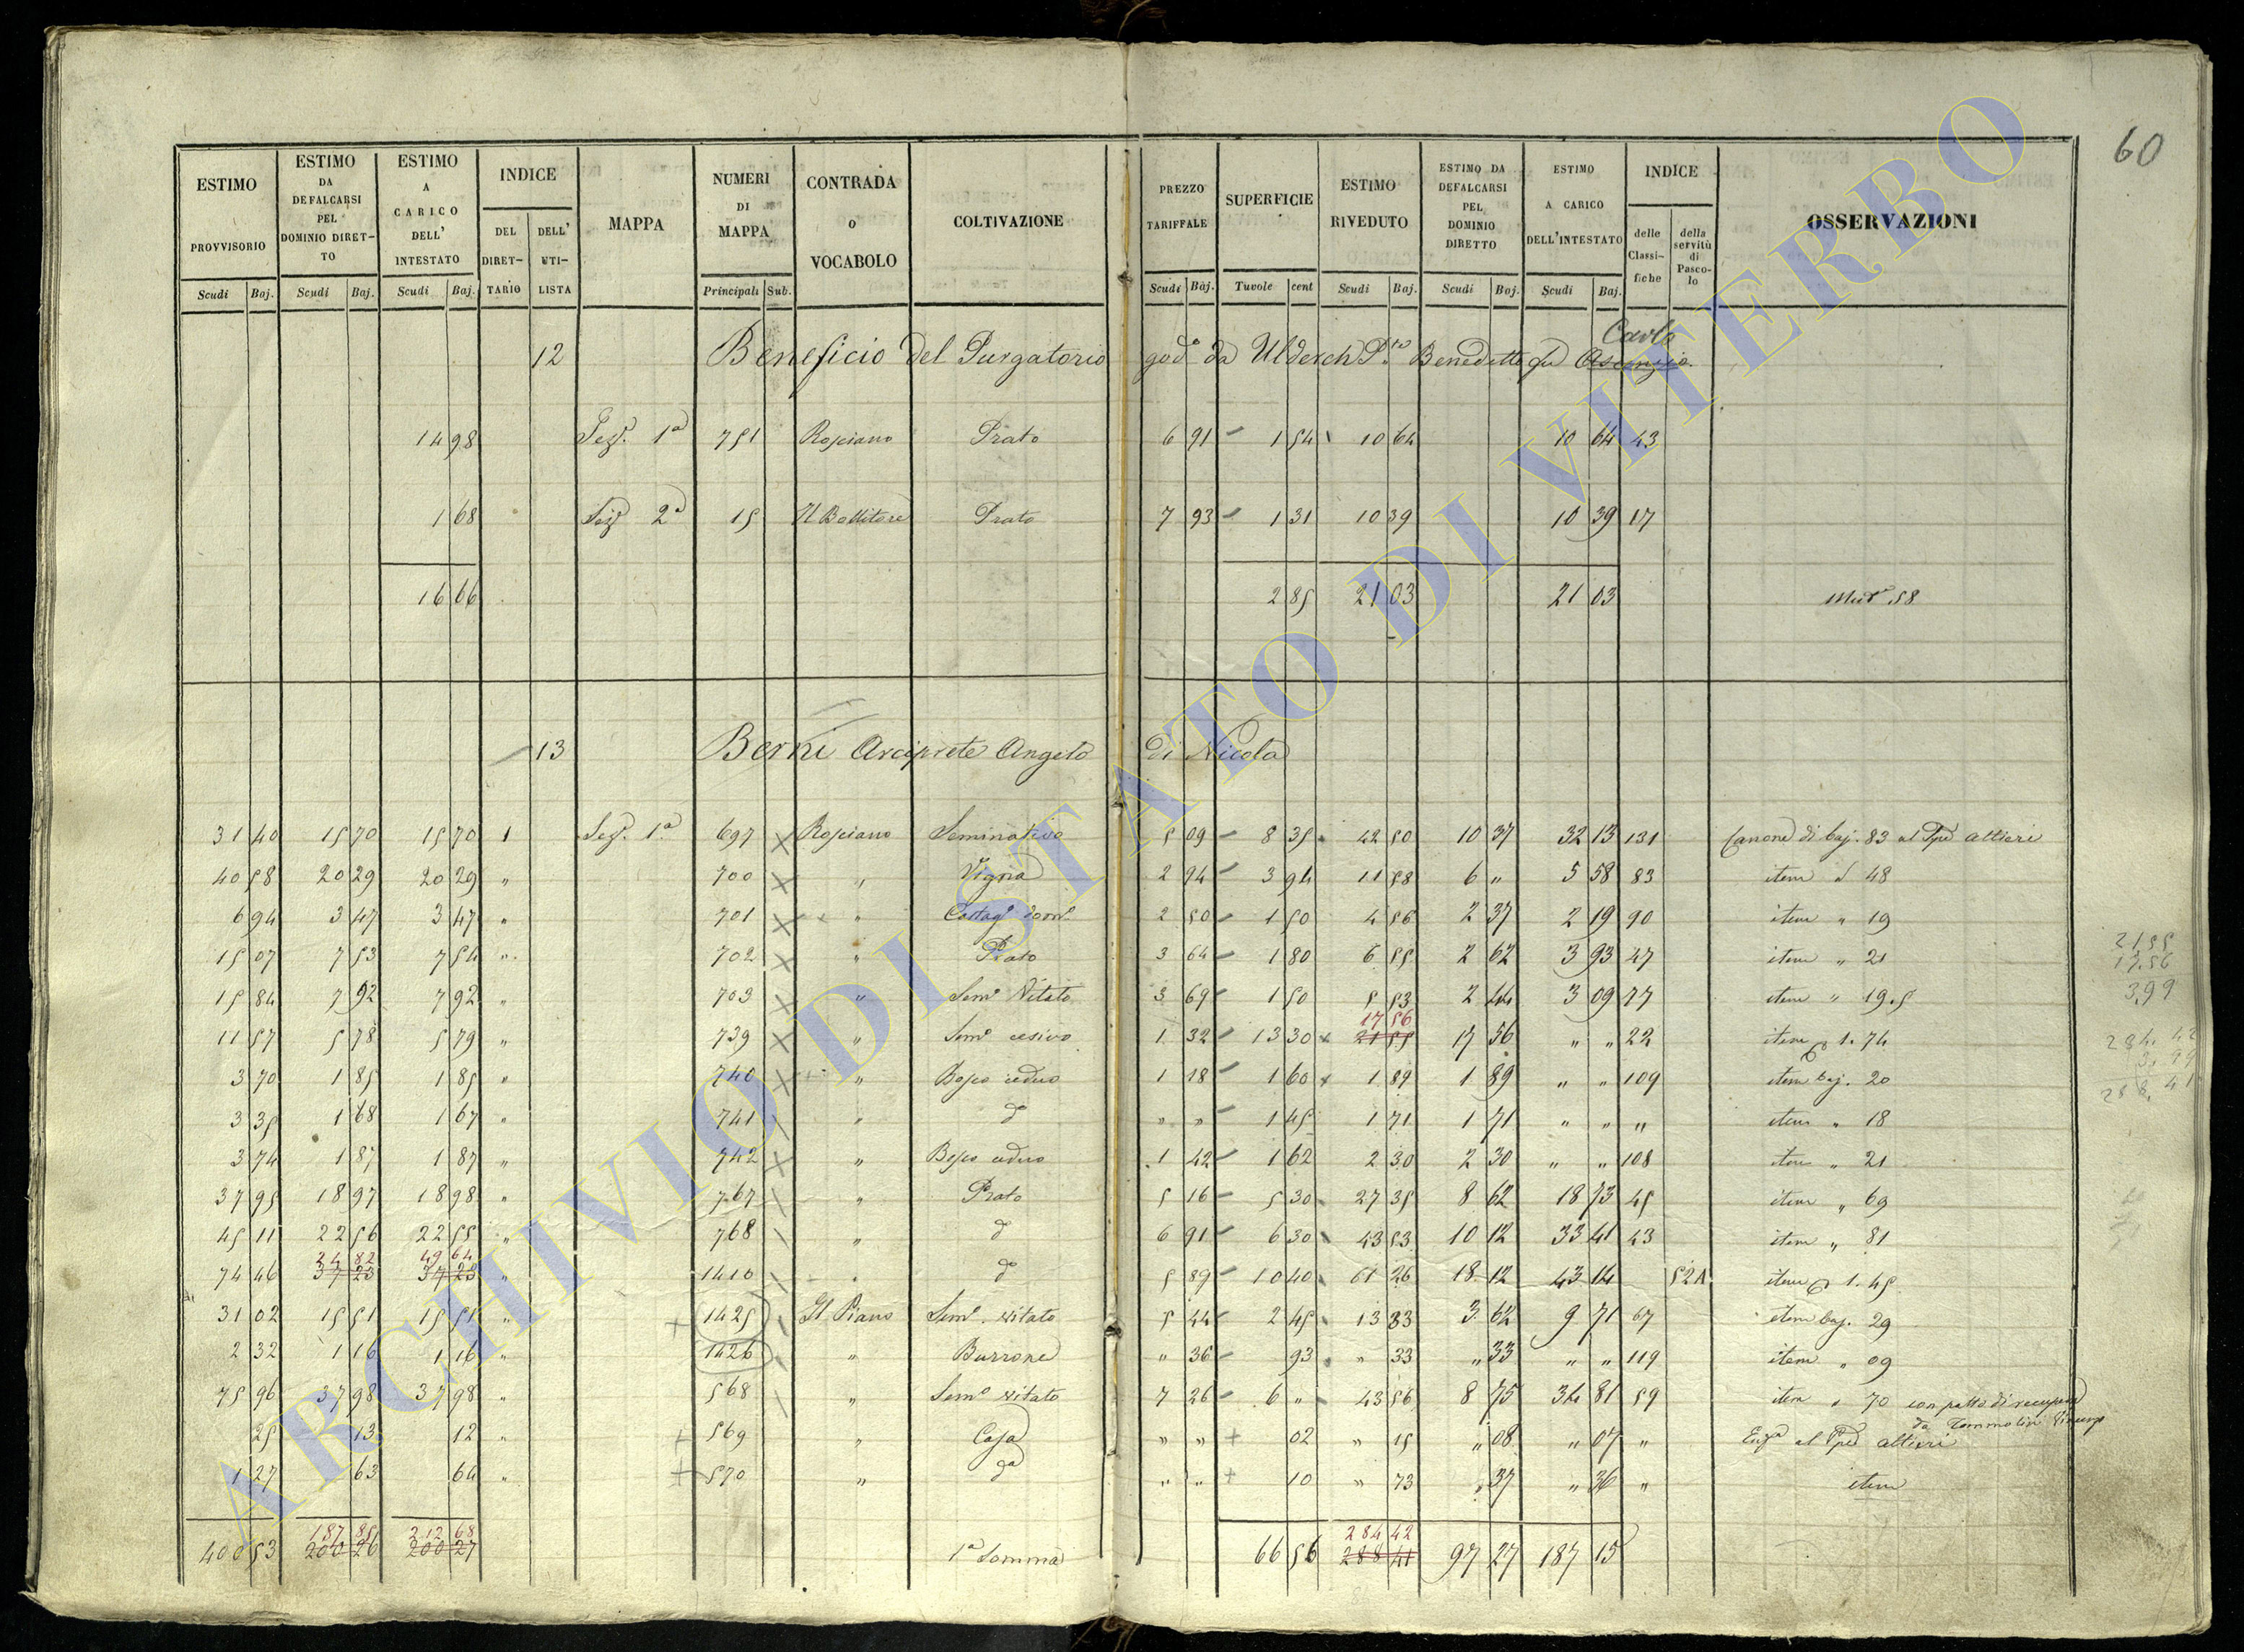 60
ESTIMO PROVVISORIO Scudi Baj. ESTIMO DA DEFALCARSI PEL DOMINIO DIRET-TO Scudi Baj. ESTIMO A CARICO DELL' INTESTATO Scudi Baj. INDICE DEL DIRET-TARIO DELL' UTI-LISTA MAPPA NUMERI DI MAPPA Principali Sub. CONTRADA O VOCABOLO COLTIVAZIONE PREZZO TARIFFALE Scudi Baj. SUPERFICIE Tavole cent ESTIMO RIVEDUTO Scudi Baj. ESTIMO DA DEFALCARSI PEL DOMINIO DIRETTO Scudi Baj. ESTIMO A CARICO DELL'INTESTATO Scudi Baj. INDICE delle Classi-fiche della servitù di Pasco-lo OSSERVAZIONI
Carlo
12 Beneficio del Purgatorio god.o da Ulderch Benedetto qu Ascenzio
14 98 Sez. 1a 751 Rosciano Prato 6 91 1 54 10 64 10 64 43
1 68 Sez 2a 15 Il Bollitore Prato 7 93 1 31 10 39 10 39 17
16 66 2 85 21 03 21 03 58
13 Berni Arciprete Angelo di Nicola
31 40 15 70 15 70 1 Sez. 1a 697 Rosciano Seminativo 5 09 8 35 42 50 10 37 32 13 131 Canone di baj. 83 al Altieri
40 58 20 29 20 29 " 700 " Vigna 2 94 3 94 11 58 6 " 5 58 83 item d 48
6 94 3 47 3 47 " 701 " 2 50 1 50 4 56 2 37 2 19 90 item " 19
15 07 7 53 7 54 " 702 " Prato 3 64 1 80 6 55 2 62 3 93 47 item " 21
15 84 7 92 7 92 " 703 " Sem.o Vitato 3 69 1 50 5 53 2 44 3 09 77 item " 19.5
17 56
11 57 5 78 5 79 " 739 " Sem.o cesivo 1 32 13 30 21 55 17 56 " " 22 item 1.74
3 70 1 85 1 85 " 740 " Bosco ceduo 1 18 1 60 1 89 1 89 " " 109 item baj. 20
3 35 1 68 1 67 " 741 " do " " 1 45 1 71 1 71 " " " item " 18
3 74 1 87 1 87 " 742 " Bosco ceduo 1 42 1 62 2 30 2 30 " " 108 item " 21
37 95 18 97 18 98 " 767 " Prato 5 16 5 30 27 35 8 62 18 73 45 item " 69
45 11 22 56 22 55 " 768 " do 6 91 6 30 43 53 10 12 33 41 43 item " 81
24 82 49 64
74 46 37 23 37 23 " 1410 " do 5 89 10 40 61 26 18 12 43 14 52A item 1.45
31 02 15 51 15 51 " 1425 Il Piano Sem.o vitato 5 44 2 45 13 33 3 62 9 71 67 item baj. 29
2 32 1 16 1 16 " 1426 " Burrone " 36 93 " 33 " 33 " " 119 item " 09
75 96 37 98 37 98 " 568 " Sem.o vitato 7 26 6 " 43 56 8 75 34 81 59 item " 70 con patto di
25 13 12 " 569 " Casa " " 02 " 15 " 08 " 07 " al Altieri
1 27 63 64 " 570 " da " " 10 " 73 " 37 " 36 " item
187 85 212 68 284 42
400 53 200 26 200 27 1a Somma 66 56 288 41 97 27 187 15
21.55
17.56
3.99
284.42
3.99
288.41
ARCHIVIO DI STATO DI VITERBO